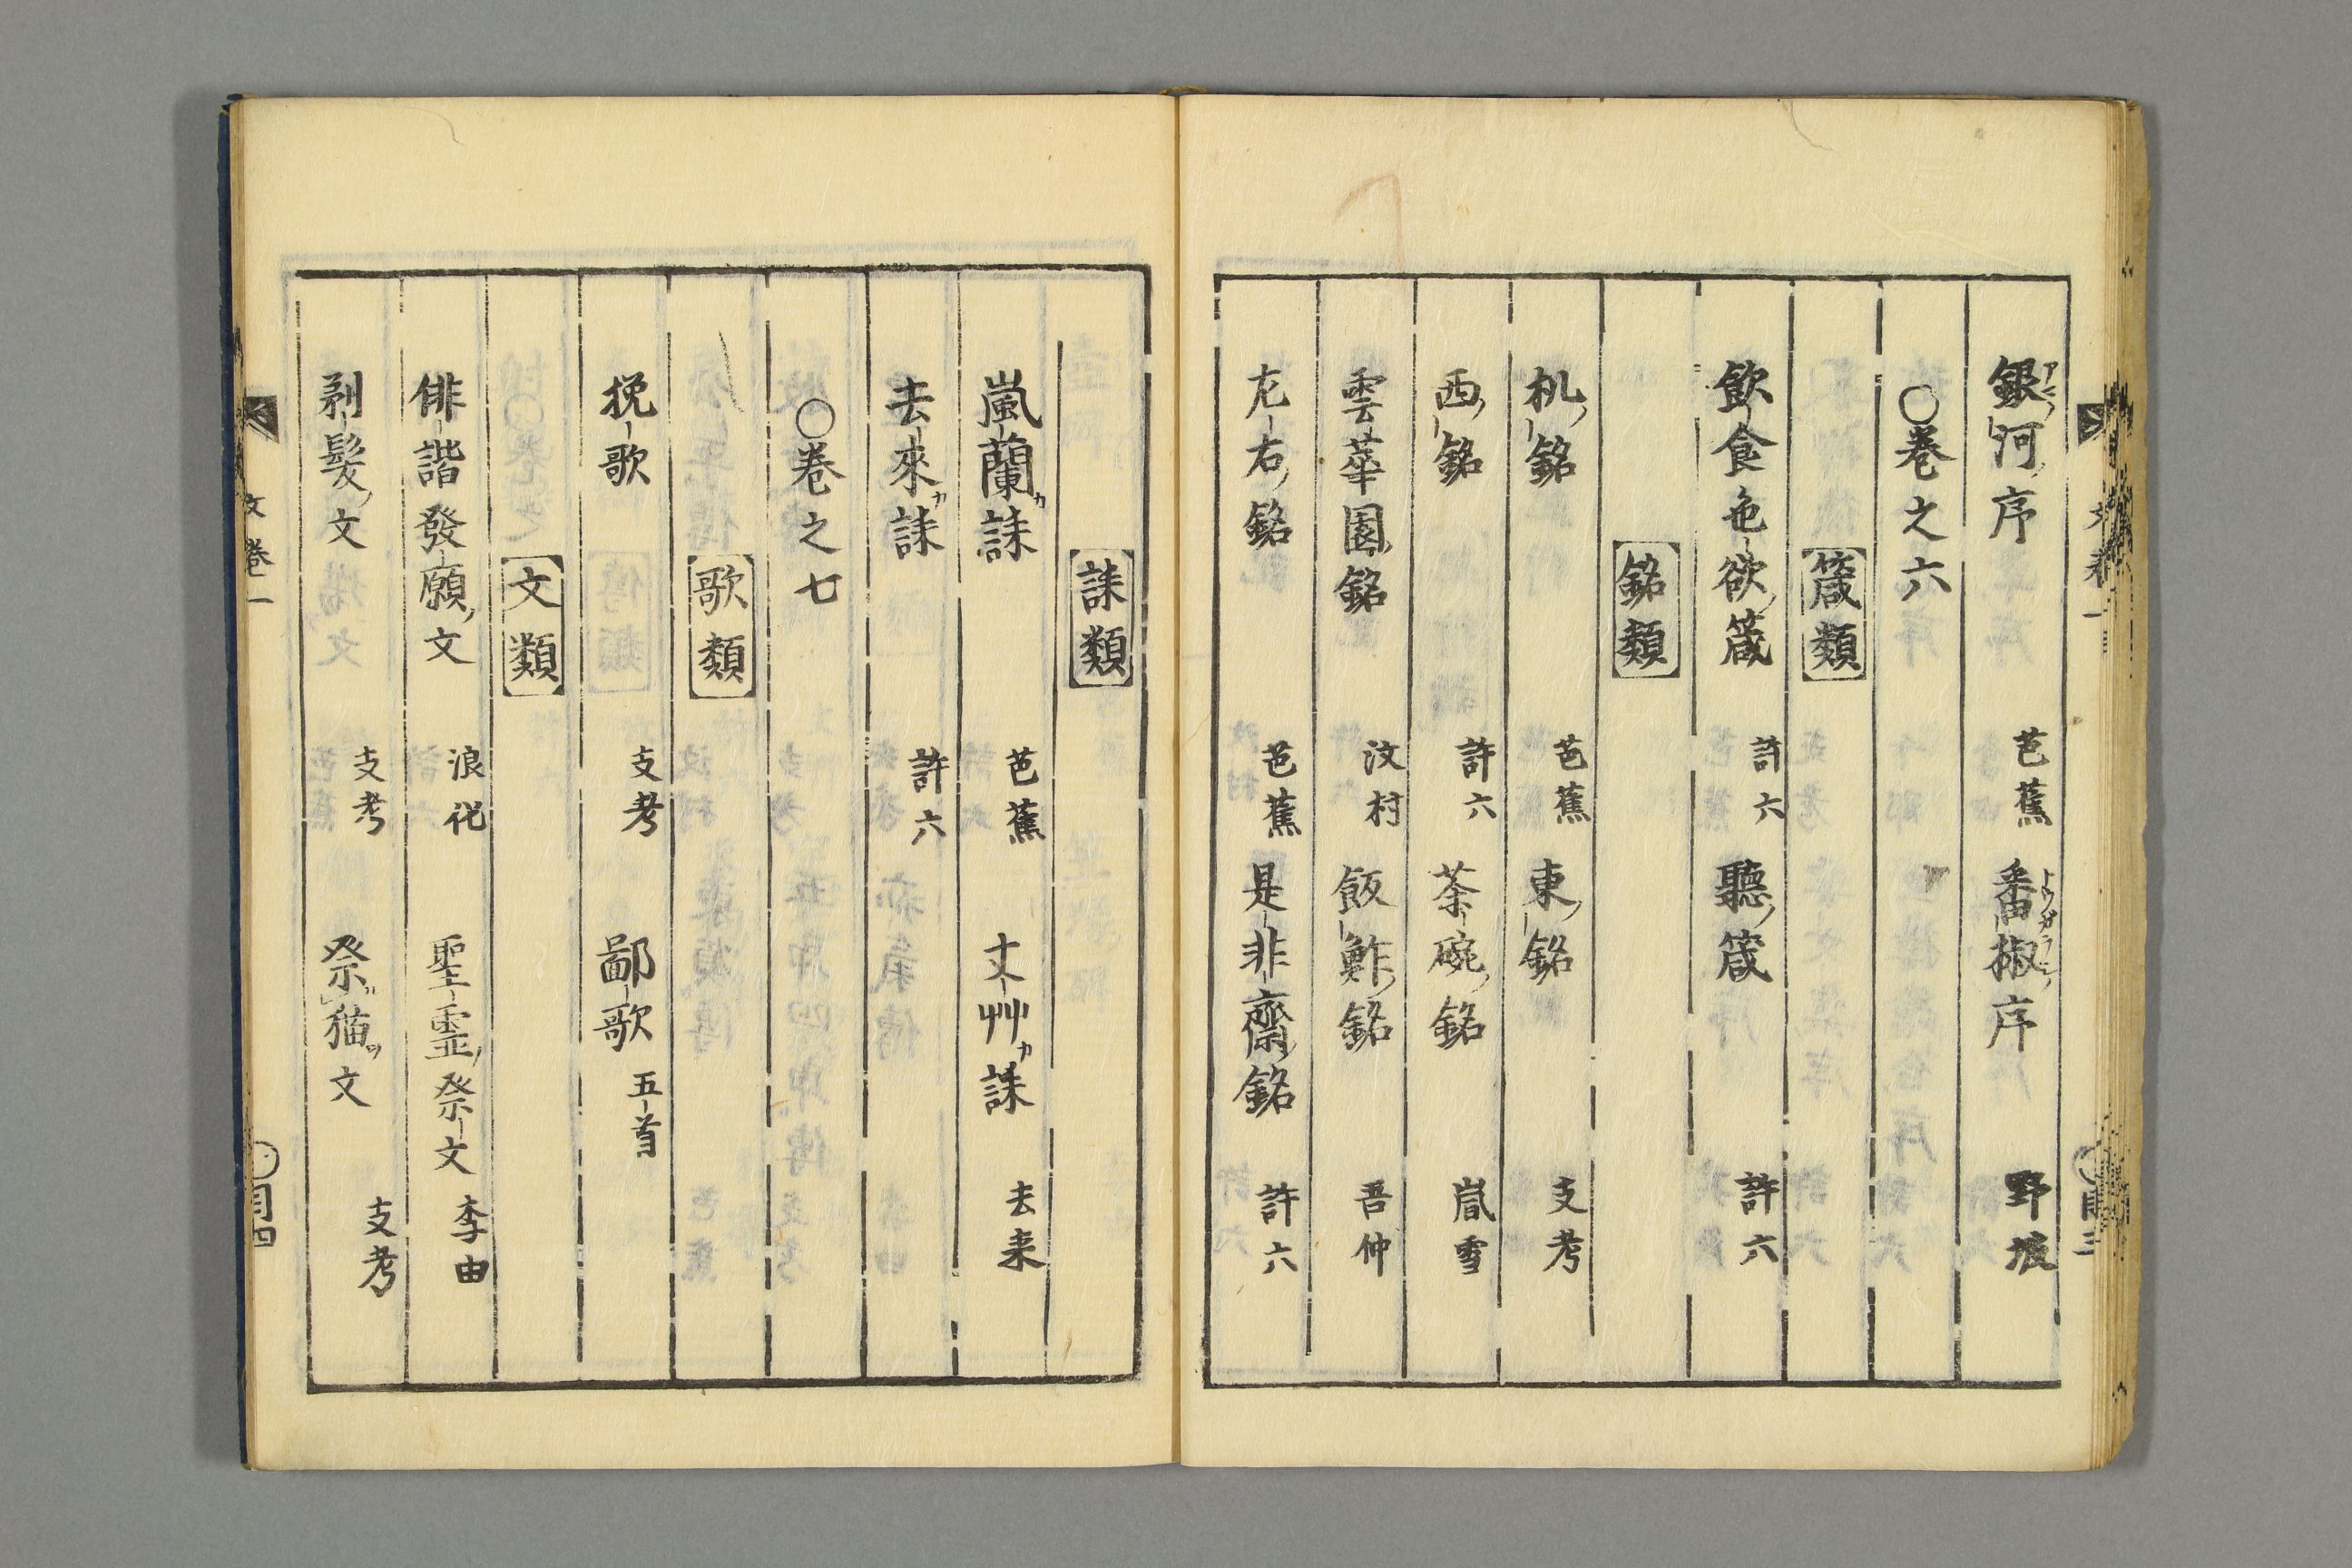 銀河ノ序 芭蕉 番椒ノ序 野坡
○巻之六
箴類
飲食色欲ノ箴 許六 聽ノ箴 許六
銘類
机ノ銘 芭蕉 東ノ銘 支考
西ノ銘 許六 茶碗ノ銘 嵐雪
雲華園ノ銘 汶村 飯鮓ノ銘 吾仲
左右ノ銘 芭蕉 是非齋ノ銘 許六
誄類
嵐蘭カ誄 芭蕉 丈艸カ誄 去来
去來カ誄 許六
○巻之七
歌類
挽歌 支考 鄙歌 五首
文類
俳諧發願ノ文 浪化 聖靈ノ祭文 李由
剃髮ノ文 支考 祭猫ヲ文 支考
文巻一
目四